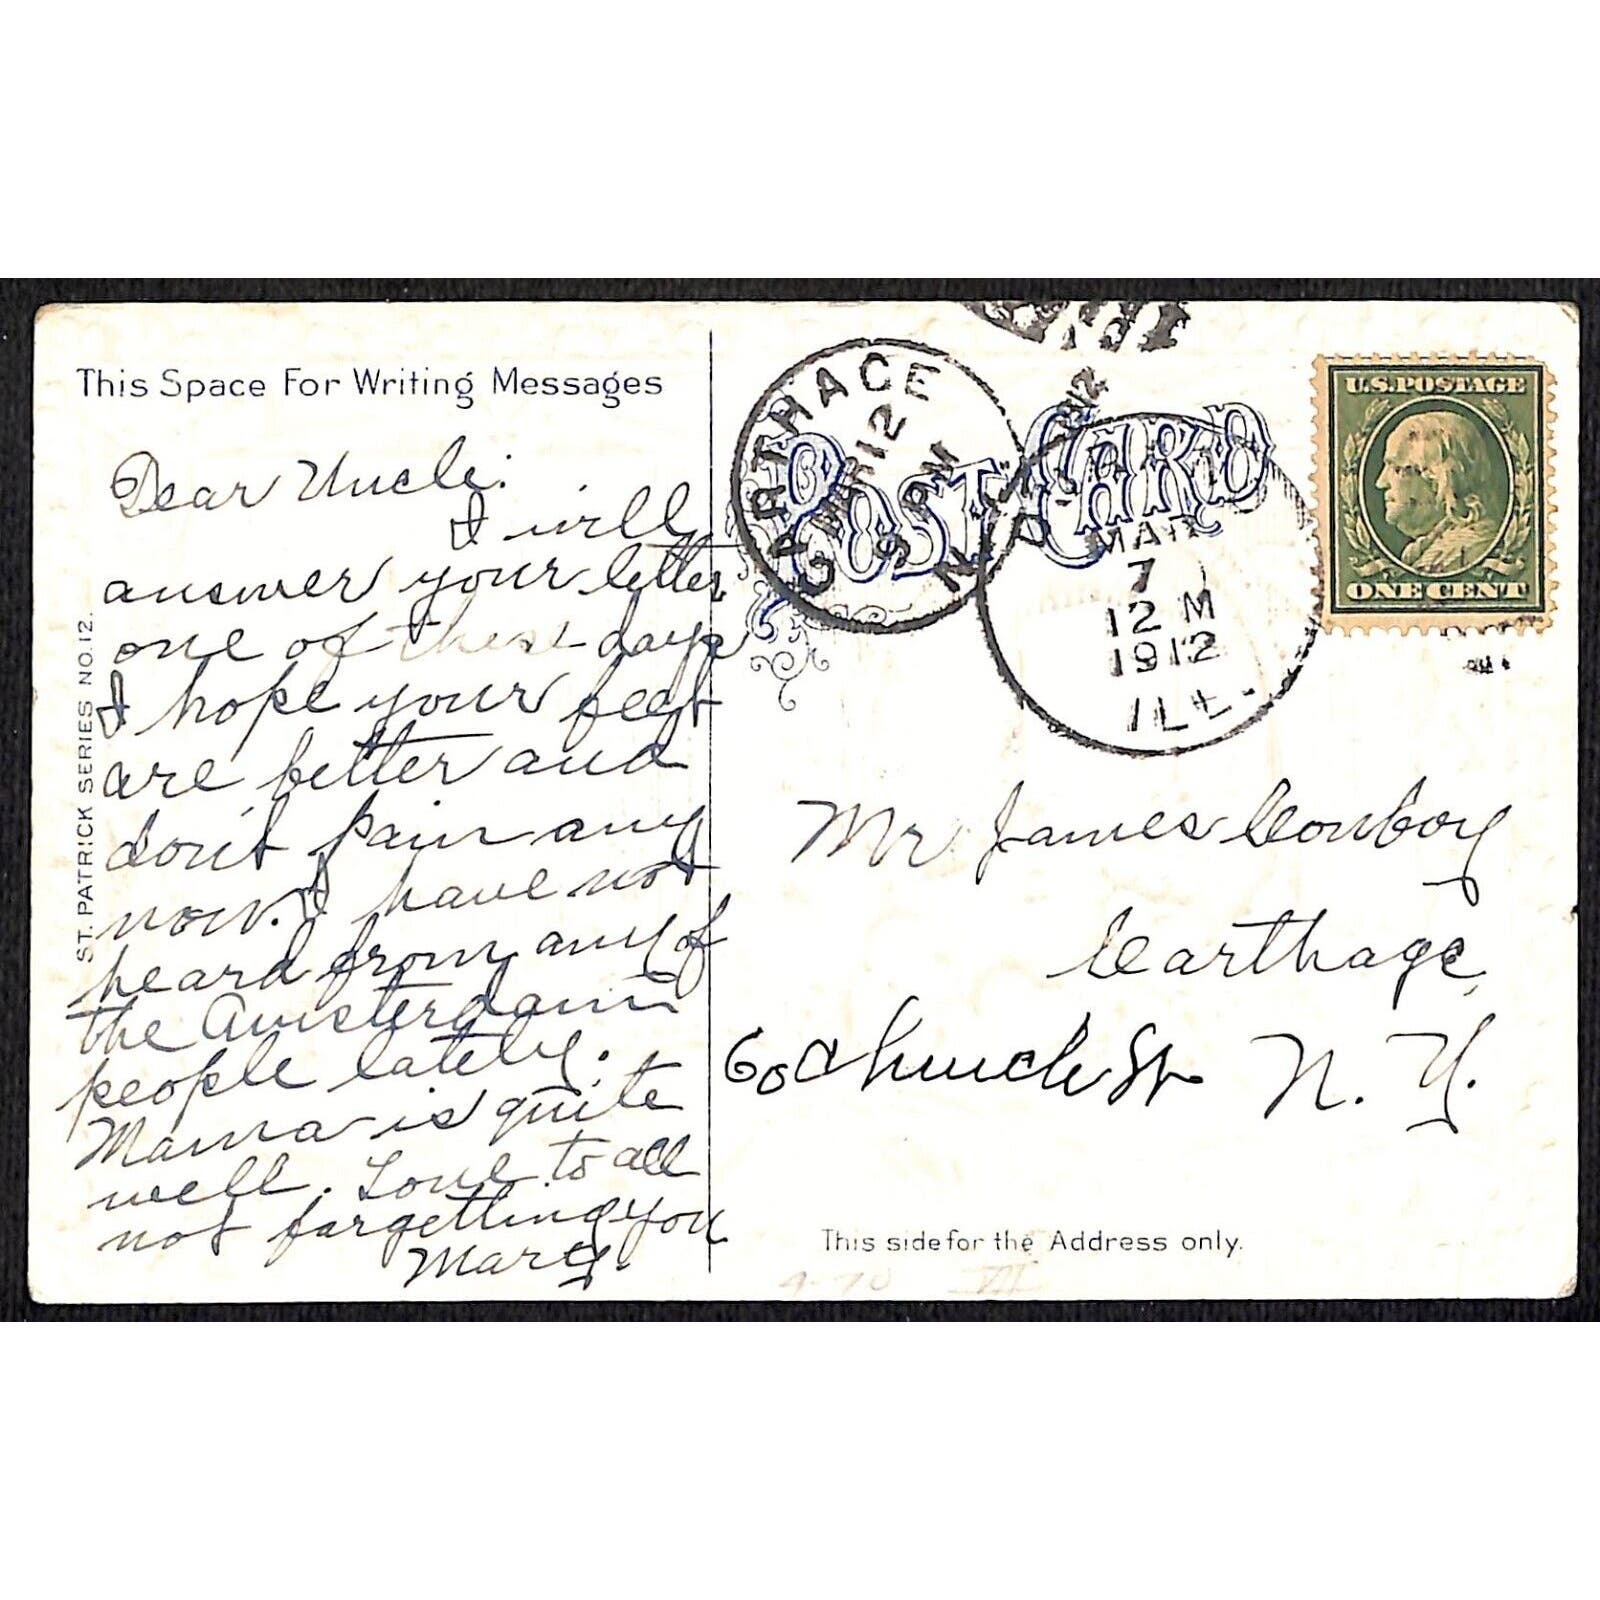 This Space For Writing Messages
Dear Uncle:
I will
answer your letter
one of these days
I hope your feet
are better and
don't pain any
now. I have not
heard from any of
the Amsterdam
people lately.
Mama is quite
well. Love to all
not fargetting you
Mary.
ST. PATRICK SERIES NO. 12.
POST CARD
CARTHAGE
MAR 12
9 PM
N.Y.
MAR
7
12 M
1912
ILL.
U.S. POSTAGE
ONE CENT
Mr James Conboy
Carthage
60 Church St N. Y.
This side for the Address only.